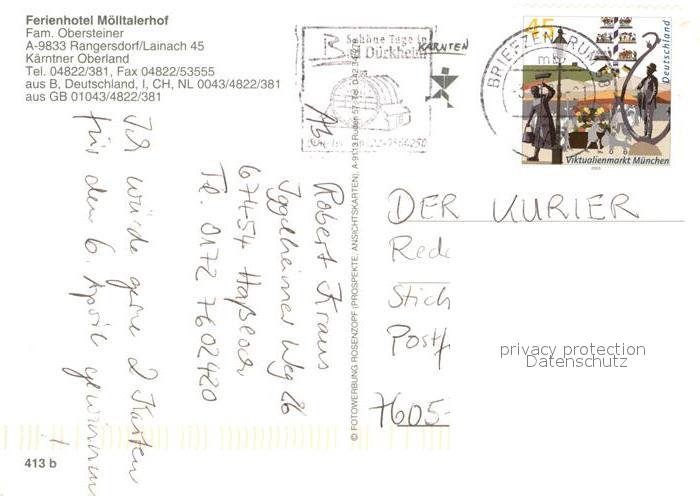 Ferienhotel Mölltalerhof
Fam. Obersteiner
A-9833 Rangersdorf/Lainach 45
Kärntner Oberland
Tel. 04822/381, Fax 04822/53555
aus B, Deutschland, I, CH, NL 0043/4822/381
aus GB 01043/4822/381
Schöne Tage in
Bad Dürkheim
KÄRNTEN
BRIEFZENTRUM
45
Deutschland
Viktualienmarkt München
Ich würde gerne 2 Karten
für den 6. April gewinnen
Abs
Robert Kraus
Iggelheimer Weg 26
67454 Haßloch
Tel. 0172 7602420
© FOTOWERBUNG ROSENZOPF (PROSPEKTE, ANSICHTSKARTEN), A-9113 Ruden 57, Tel.
DER KURIER
Rede
Stich
Postf
7605
privacy protection
Datenschutz
413 b